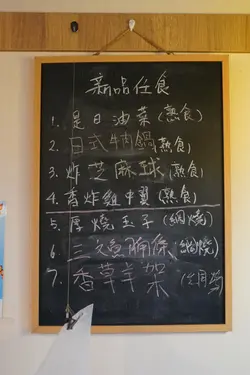 新品任食
1. 是日油菜(熟食)
2. 日式牛肉鍋(熟食)
3. 炸芝麻球(熟食)
4. 香炸雞中翼(熟食)
5. 厚燒玉子(網燒)
6. 三文魚腩條(網燒)
7. 香草羊架